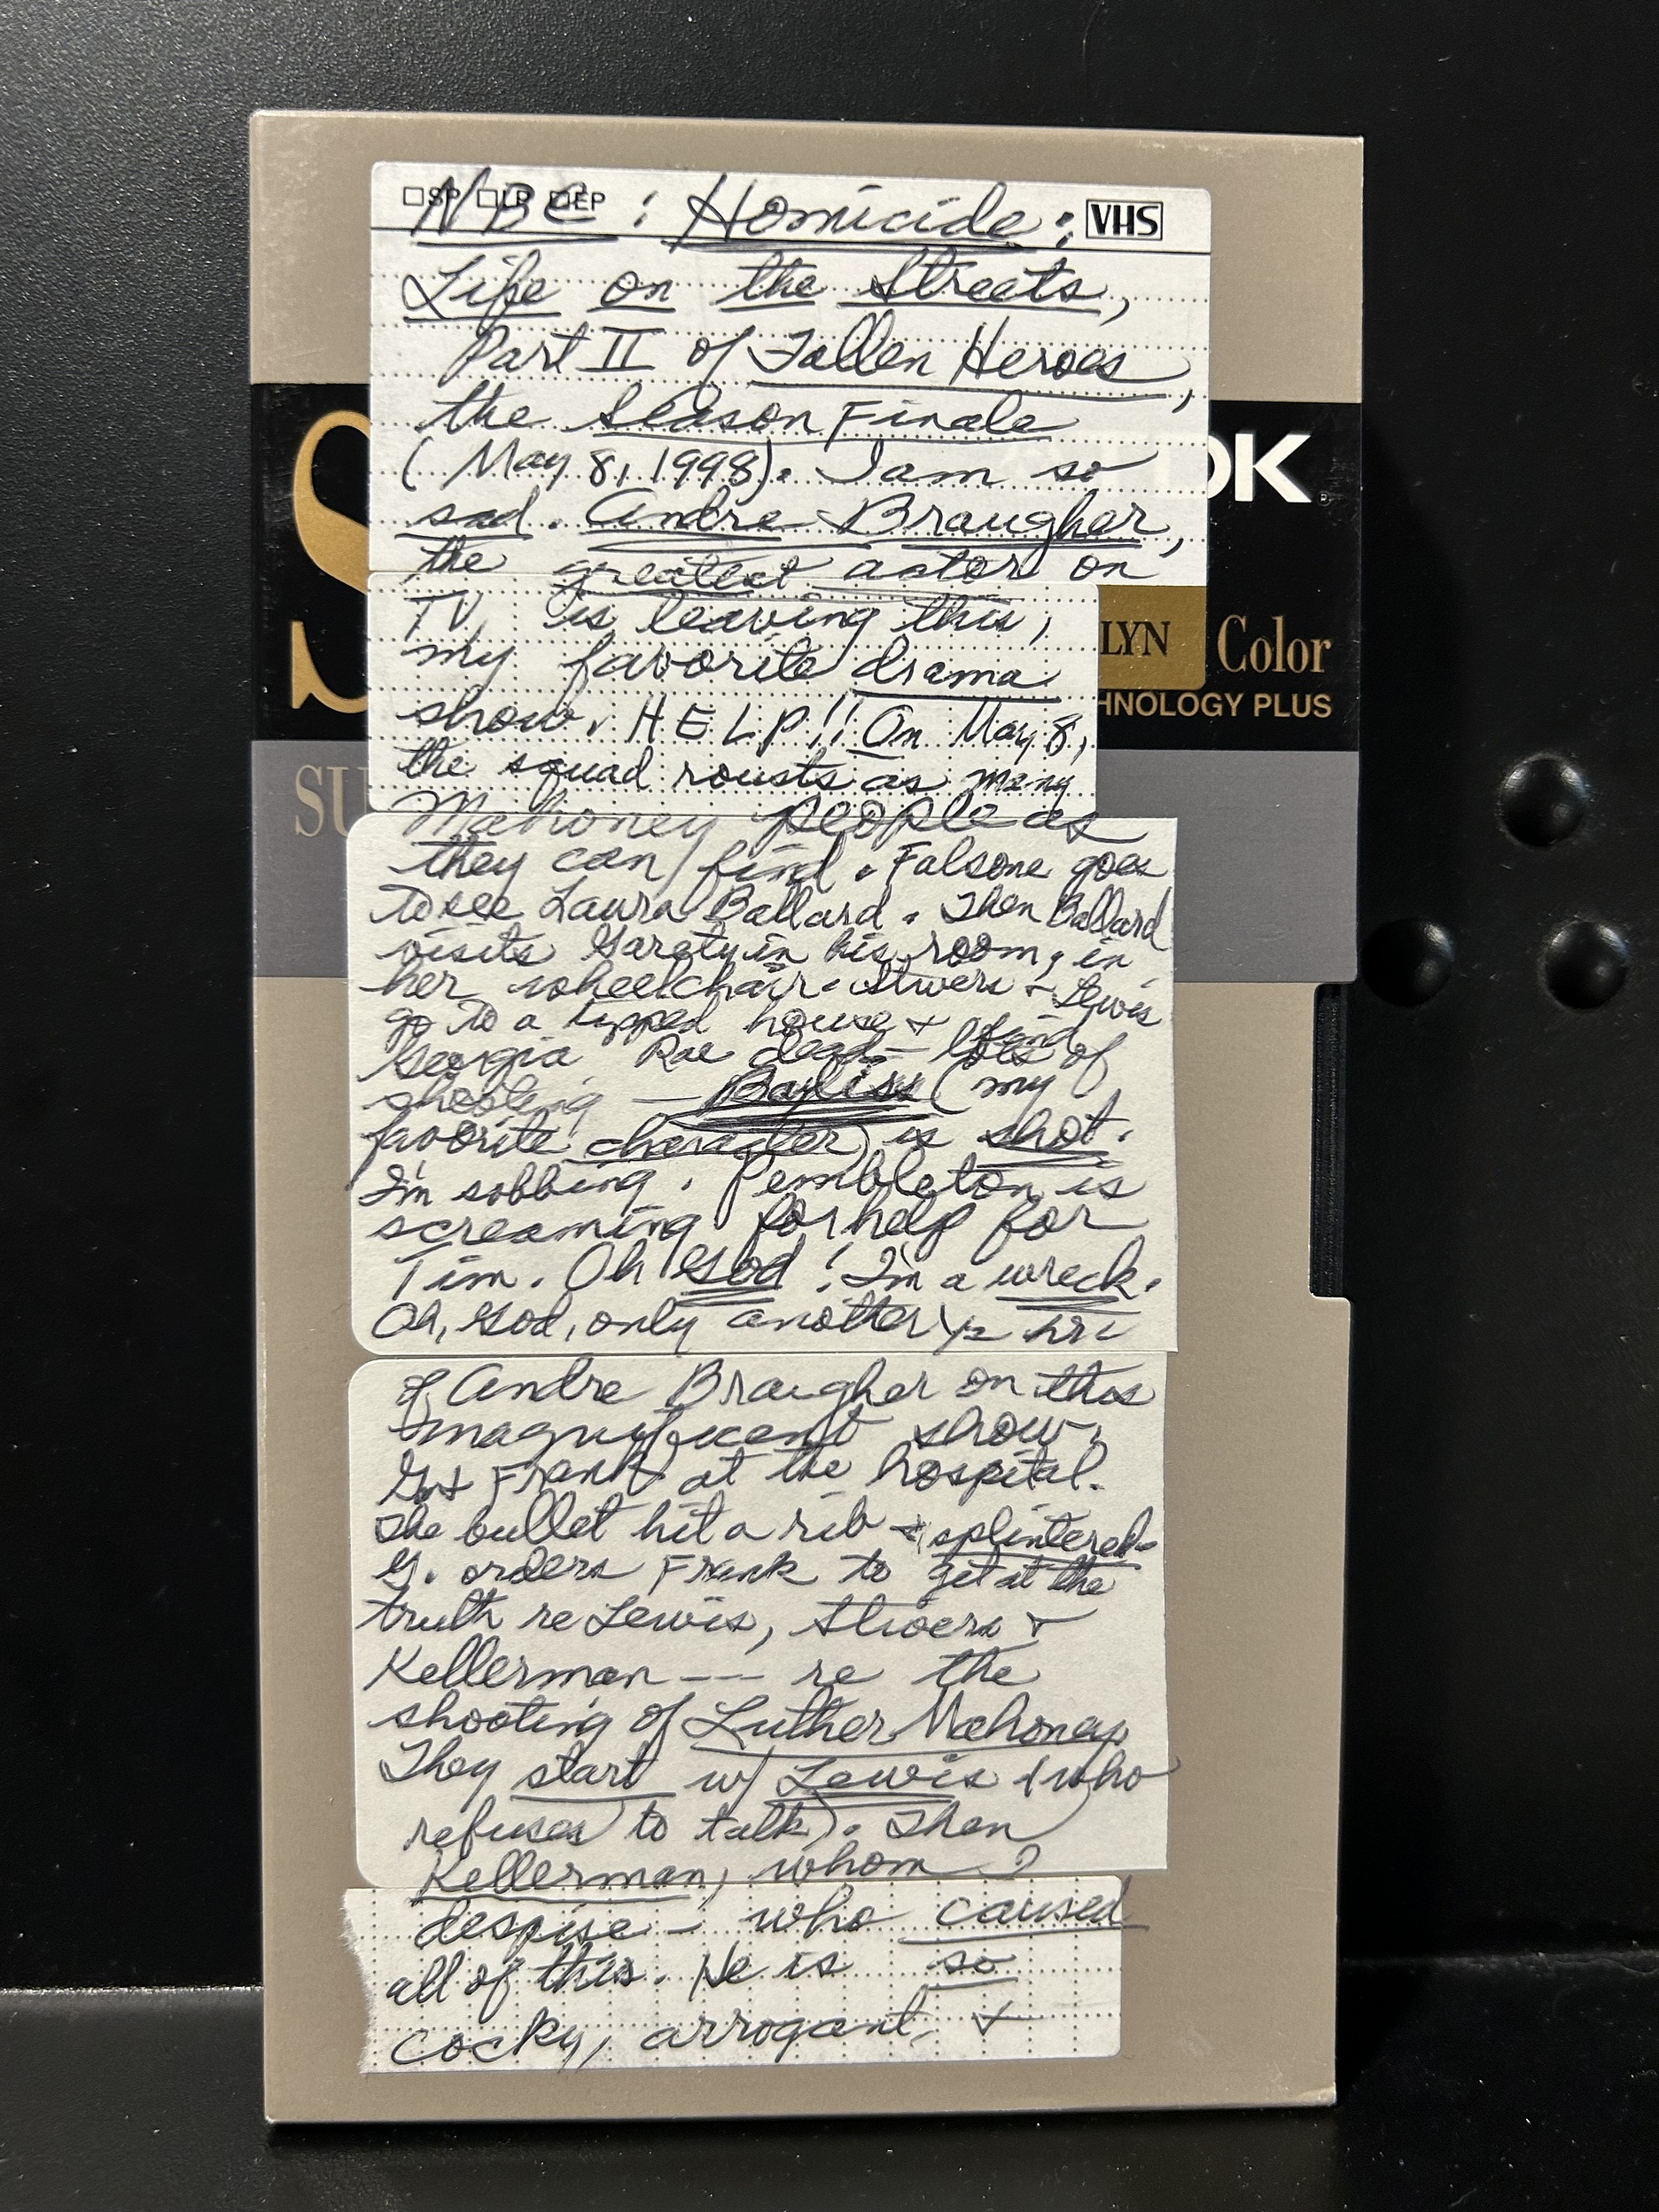 ☐SP ☐LP ☐EP
NBC: Homicide: VHS
Life on the Streets,
Part II of Fallen Heroes,
the Season Finale
(May 8, 1998). I am so
sad. Andre Braugher,
the greatest actor on
TV, is leaving this,
my favorite drama
show. HELP!! On May 8,
the squad rousts as many
Mahoney people as
they can find. Falsone goes
to see Laura Ballard. Then Ballard
visits Garety in his room, in
her wheelchair. Stivers & Lewis
go to a tipped house & find
Georgia Rae dead - lots of
shooting — Bayliss (my
favorite character) is shot.
I'm sobbing. Pembleton is
screaming for help for
Tim. Oh God! I'm a wreck.
Oh, God, only another ½ hr
of Andre Braugher on this
magnificent show.
G & Frank at the hospital.
The bullet hit a rib & splintered.
G. orders Frank to get at the
truth re Lewis, Stivers &
Kellerman --- re the
shooting of Luther Mahoney
They start w/ Lewis (who
refuses to talk). Then
Kellerman, whom I
despise - who caused
all of this. He is so
cocky, arrogant, &
S
DK
LYN Color
HNOLOGY PLUS
SU